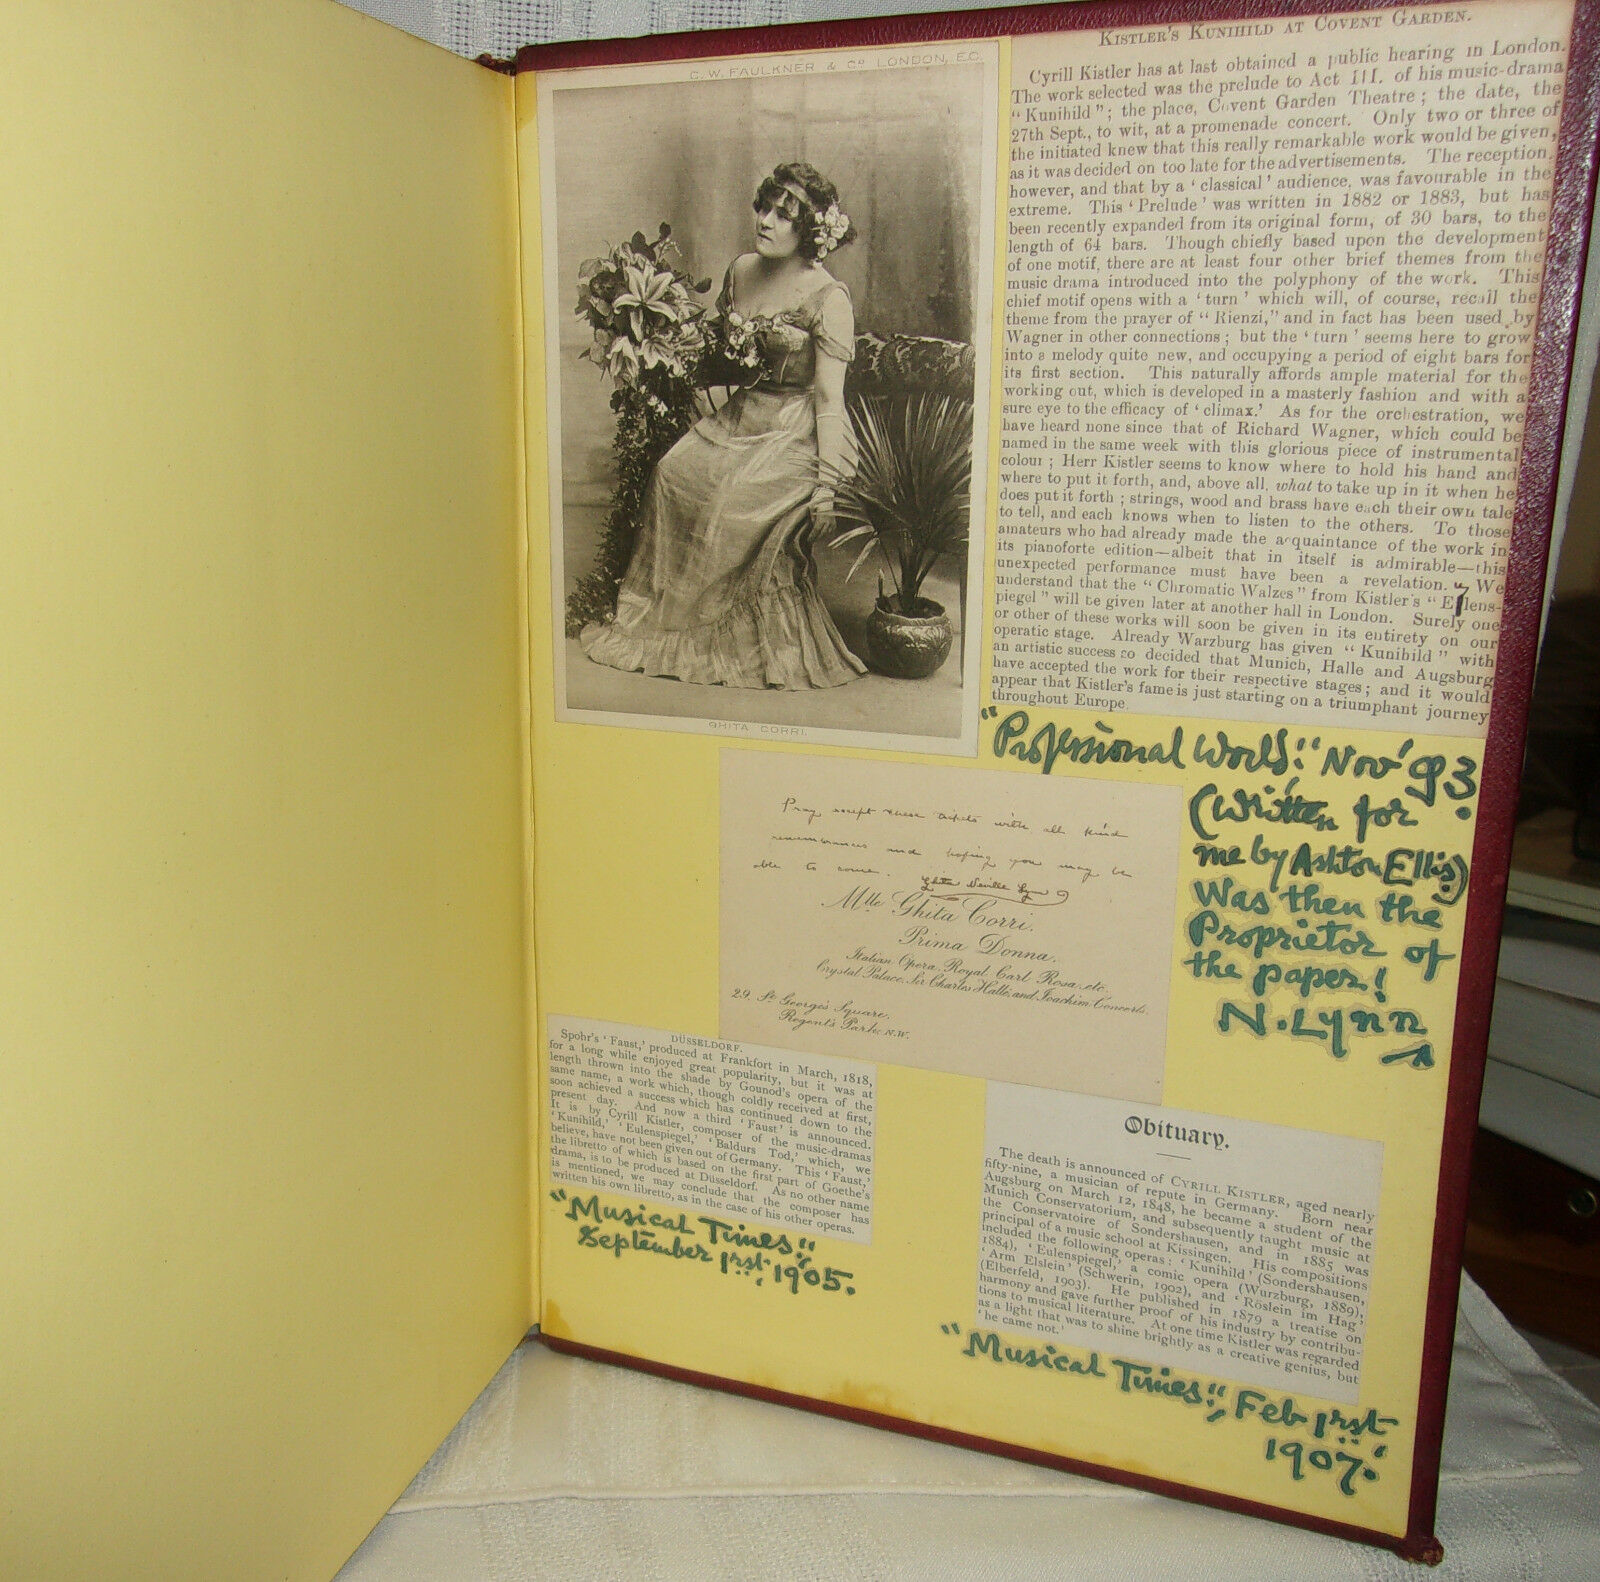 C. W. FAULKNER & Co LONDON, E.C.
GHITA CORRI.
KISTLER'S KUNIHILD AT COVENT GARDEN.
Cyrill Kistler has at last obtained a public hearing in London.
The work selected was the prelude to Act III. of his music-drama
"Kunihild"; the place, Covent Garden Theatre; the date, the
27th Sept., to wit, at a promenade concert. Only two or three of
the initiated knew that this really remarkable work would be given,
as it was decided on too late for the advertisements. The reception,
however, and that by a 'classical' audience, was favourable in the
extreme. This 'Prelude' was written in 1882 or 1883, but has
been recently expanded from its original form, of 30 bars, to the
length of 64 bars. Though chiefly based upon the development
of one motif, there are at least four other brief themes from the
music drama introduced into the polyphony of the work. This
chief motif opens with a 'turn' which will, of course, recall the
theme from the prayer of "Rienzi," and in fact has been used by
Wagner in other connections; but the 'turn' seems here to grow
into a melody quite new, and occupying a period of eight bars for
its first section. This naturally affords ample material for the
working out, which is developed in a masterly fashion and with a
sure eye to the efficacy of 'climax.' As for the orchestration, we
have heard none since that of Richard Wagner, which could be
named in the same week with this glorious piece of instrumental
colour; Herr Kistler seems to know where to hold his hand and
where to put it forth, and, above all, what to take up in it when he
does put it forth; strings, wood and brass have each their own tale
to tell, and each knows when to listen to the others. To those
amateurs who had already made the acquaintance of the work in
its pianoforte edition—albeit that in itself is admirable—this
unexpected performance must have been a revelation. We
understand that the "Chromatic Walzes" from Kistler's "Eulens-
piegel" will be given later at another hall in London. Surely one
or other of these works will soon be given in its entirety on our
operatic stage. Already Warzburg has given "Kunihild" with
an artistic success so decided that Munich, Halle and Augsburg
have accepted the work for their respective stages; and it would
appear that Kistler's fame is just starting on a triumphant journey
throughout Europe.
"Professional World." Nov' 93.
(Written for
me by Ashton Ellis)
Was then the
Proprietor of
the paper!
N. Lynn
Pray accept these tickets with all kind
remembrances and hoping you may be
able to come. Ghita Neville Lynn
Mlle Ghita Corri.
Prima Donna.
Italian Opera, Royal Carl Rosa, etc.
Crystal Palace, Sir Charles Hallé, and Joachim Concerts.
29, St George's Square,
Regent's Park, N.W.
DÜSSELDORF.
Spohr's 'Faust,' produced at Frankfort in March, 1818,
for a long while enjoyed great popularity, but it was at
length thrown into the shade by Gounod's opera of the
same name, a work which, though coldly received at first,
soon achieved a success which has continued down to the
present day. And now a third 'Faust' is announced.
It is by Cyrill Kistler, composer of the music-dramas
'Kunihild,' 'Eulenspiegel,' 'Baldurs Tod,' which, we
believe, have not been given out of Germany. This 'Faust,'
the libretto of which is based on the first part of Goethe's
drama, is to be produced at Düsseldorf. As no other name
is mentioned, we may conclude that the composer has
written his own libretto, as in the case of his other operas.
"Musical Times."
September 1rst 1905.
Obituary.
The death is announced of CYRILL KISTLER, aged nearly
fifty-nine, a musician of repute in Germany. Born near
Augsburg on March 12, 1848, he became a student of the
Munich Conservatorium, and subsequently taught music at
the Conservatoire of Sondershausen, and in 1885 was
principal of a music school at Kissingen. His compositions
included the following operas: 'Kunihild' (Sondershausen,
1884), 'Eulenspiegel,' a comic opera (Wurzburg, 1889),
'Arm Elslein' (Schwerin, 1902), and 'Röslein im Hag'
(Elberfeld, 1903). He published in 1879 a treatise on
harmony and gave further proof of his industry by contribu-
tions to musical literature. At one time Kistler was regarded
as a light that was to shine brightly as a creative genius, but
'he came not.'
"Musical Times", Feb 1rst
1907.